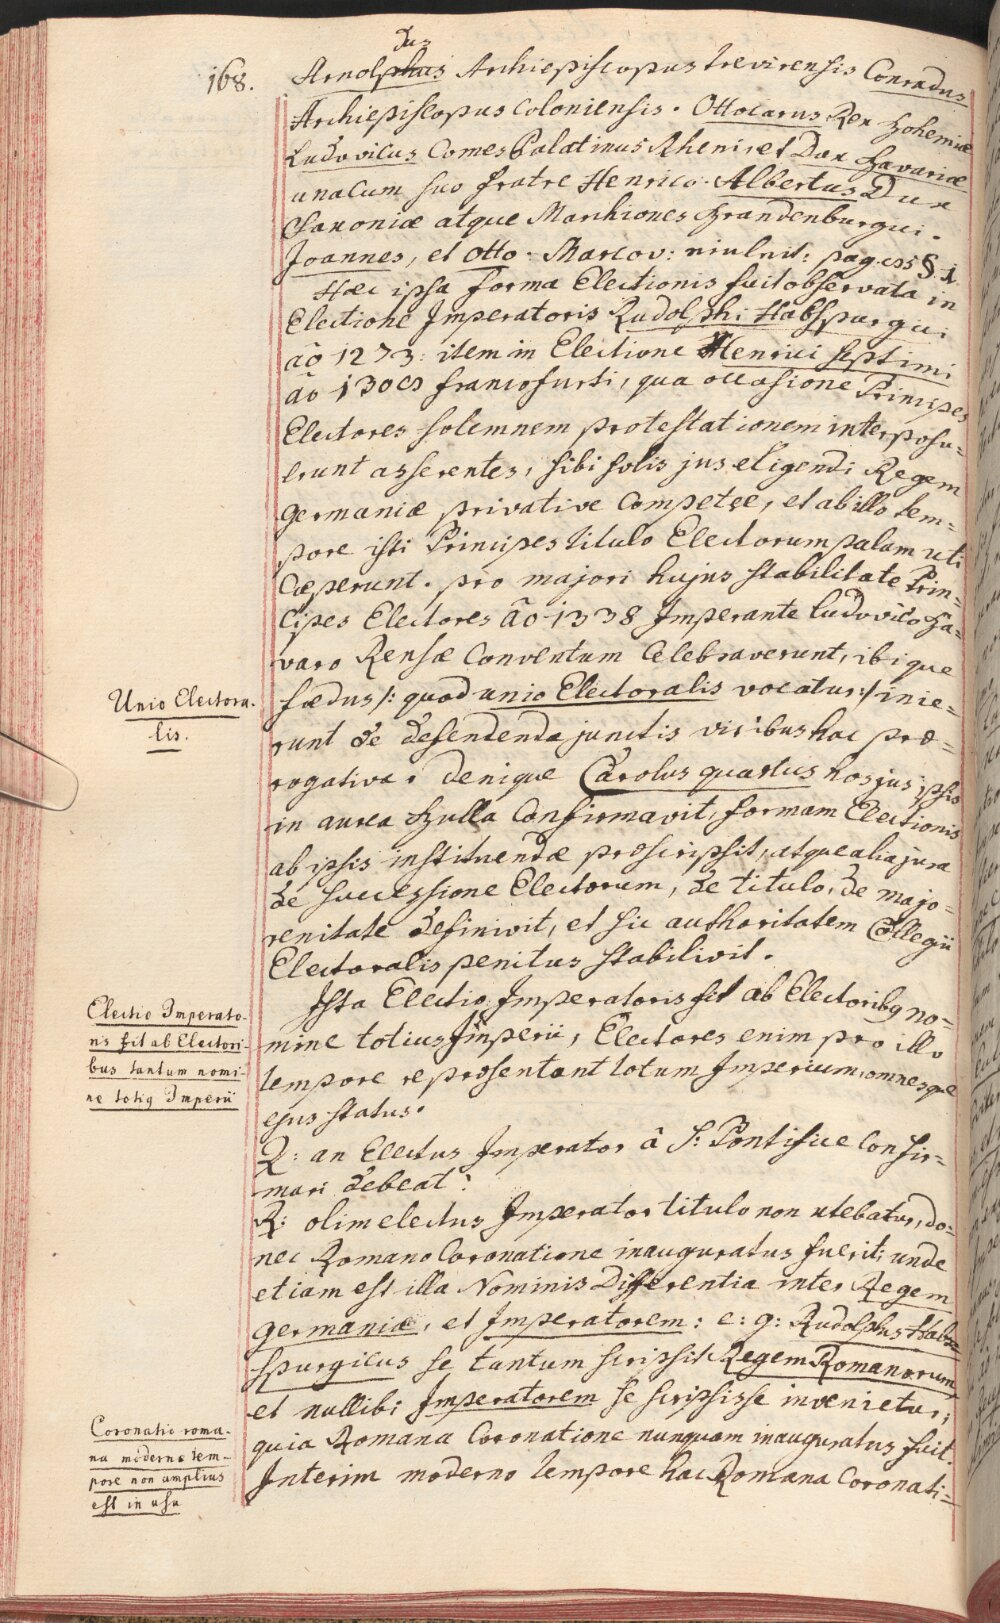 168.
dus
Arnolphus Archiepiscopus trevirensis Conradus
Archiepiscopus Coloniensis. Ottocarus Rex Bohemiæ
Ludovicus Comes Palatinus Rheni, et Dux Bavariæ
unacum suo fratre Henrico. Albertus Dux
Saxoniæ atque Marchiones Brandenburgici.
Joannes, et Otto. Marcov: pag. §. 1.
Hæc ipsa forma Electionis fuit observata in
Electione Imperatoris Rudolphi Habspurgici
aō 1273: item in Electione Henrici septimi
aō 1308 francofurti, qua occasione Principes
Electores solemnem protestationem interposu=
erunt asserentes, sibi solis jus eligendi Regem
germaniæ privative Competere, et ab illo tem=
pore isti Principes titulo Electorum palam uti
Cæperunt. pro majori hujus stabilitate Prin=
cipes Electores aō 1338 Imperante ludovico Ba=
varo Rensæ Conventum Celebraverunt, ibique
fædus /: quod unio Electoralis vocatur :/ inie=
runt de defendenda junctis viribus hac præ=
rogativa. denique Carolus quartus hos jus ipsis
in aurea Bulla Confirmavit, formam Electionis
ab ipsis instituendæ præscripsit, atque alia jura
de successione Electorum, de titulo, de majo=
renitate definivit, et sic authoritatem Collegii
Electoralis penitus stabilivit.
Ista Electio Imperatoris fit ab Electoribq no=
mine totius Imperii, Electores enim pro illo
tempore repræsentant totum Imperium, omnesque
ejus status.
Q: an Electus Imperator â S: Pontifice Confir=
mari debeat?
R: olim electus Imperator titulo non utebatur, do=
nec Romano Coronatione inauguratus fuerit; unde
etiam est illa Nominis Differentia inter Regem
germaniæ, et Imperatorem: e: g: Rudolphus Habs=
purgicus se tantum scripsit Regem Romanorum,
et nullibi Imperatorem se scripsisse invenietur;
quia Romana Coronatione nunquam inauguratus fuit.
Interim moderno tempore hac Romana Coronati=
Unio Electora=
lis.
Electio Imperato=
ris fit ab Electori=
bus tantum nomi=
ne totiq Imperii
Coronatio roma=
na moderno tem=
pore non amplius
est in usu